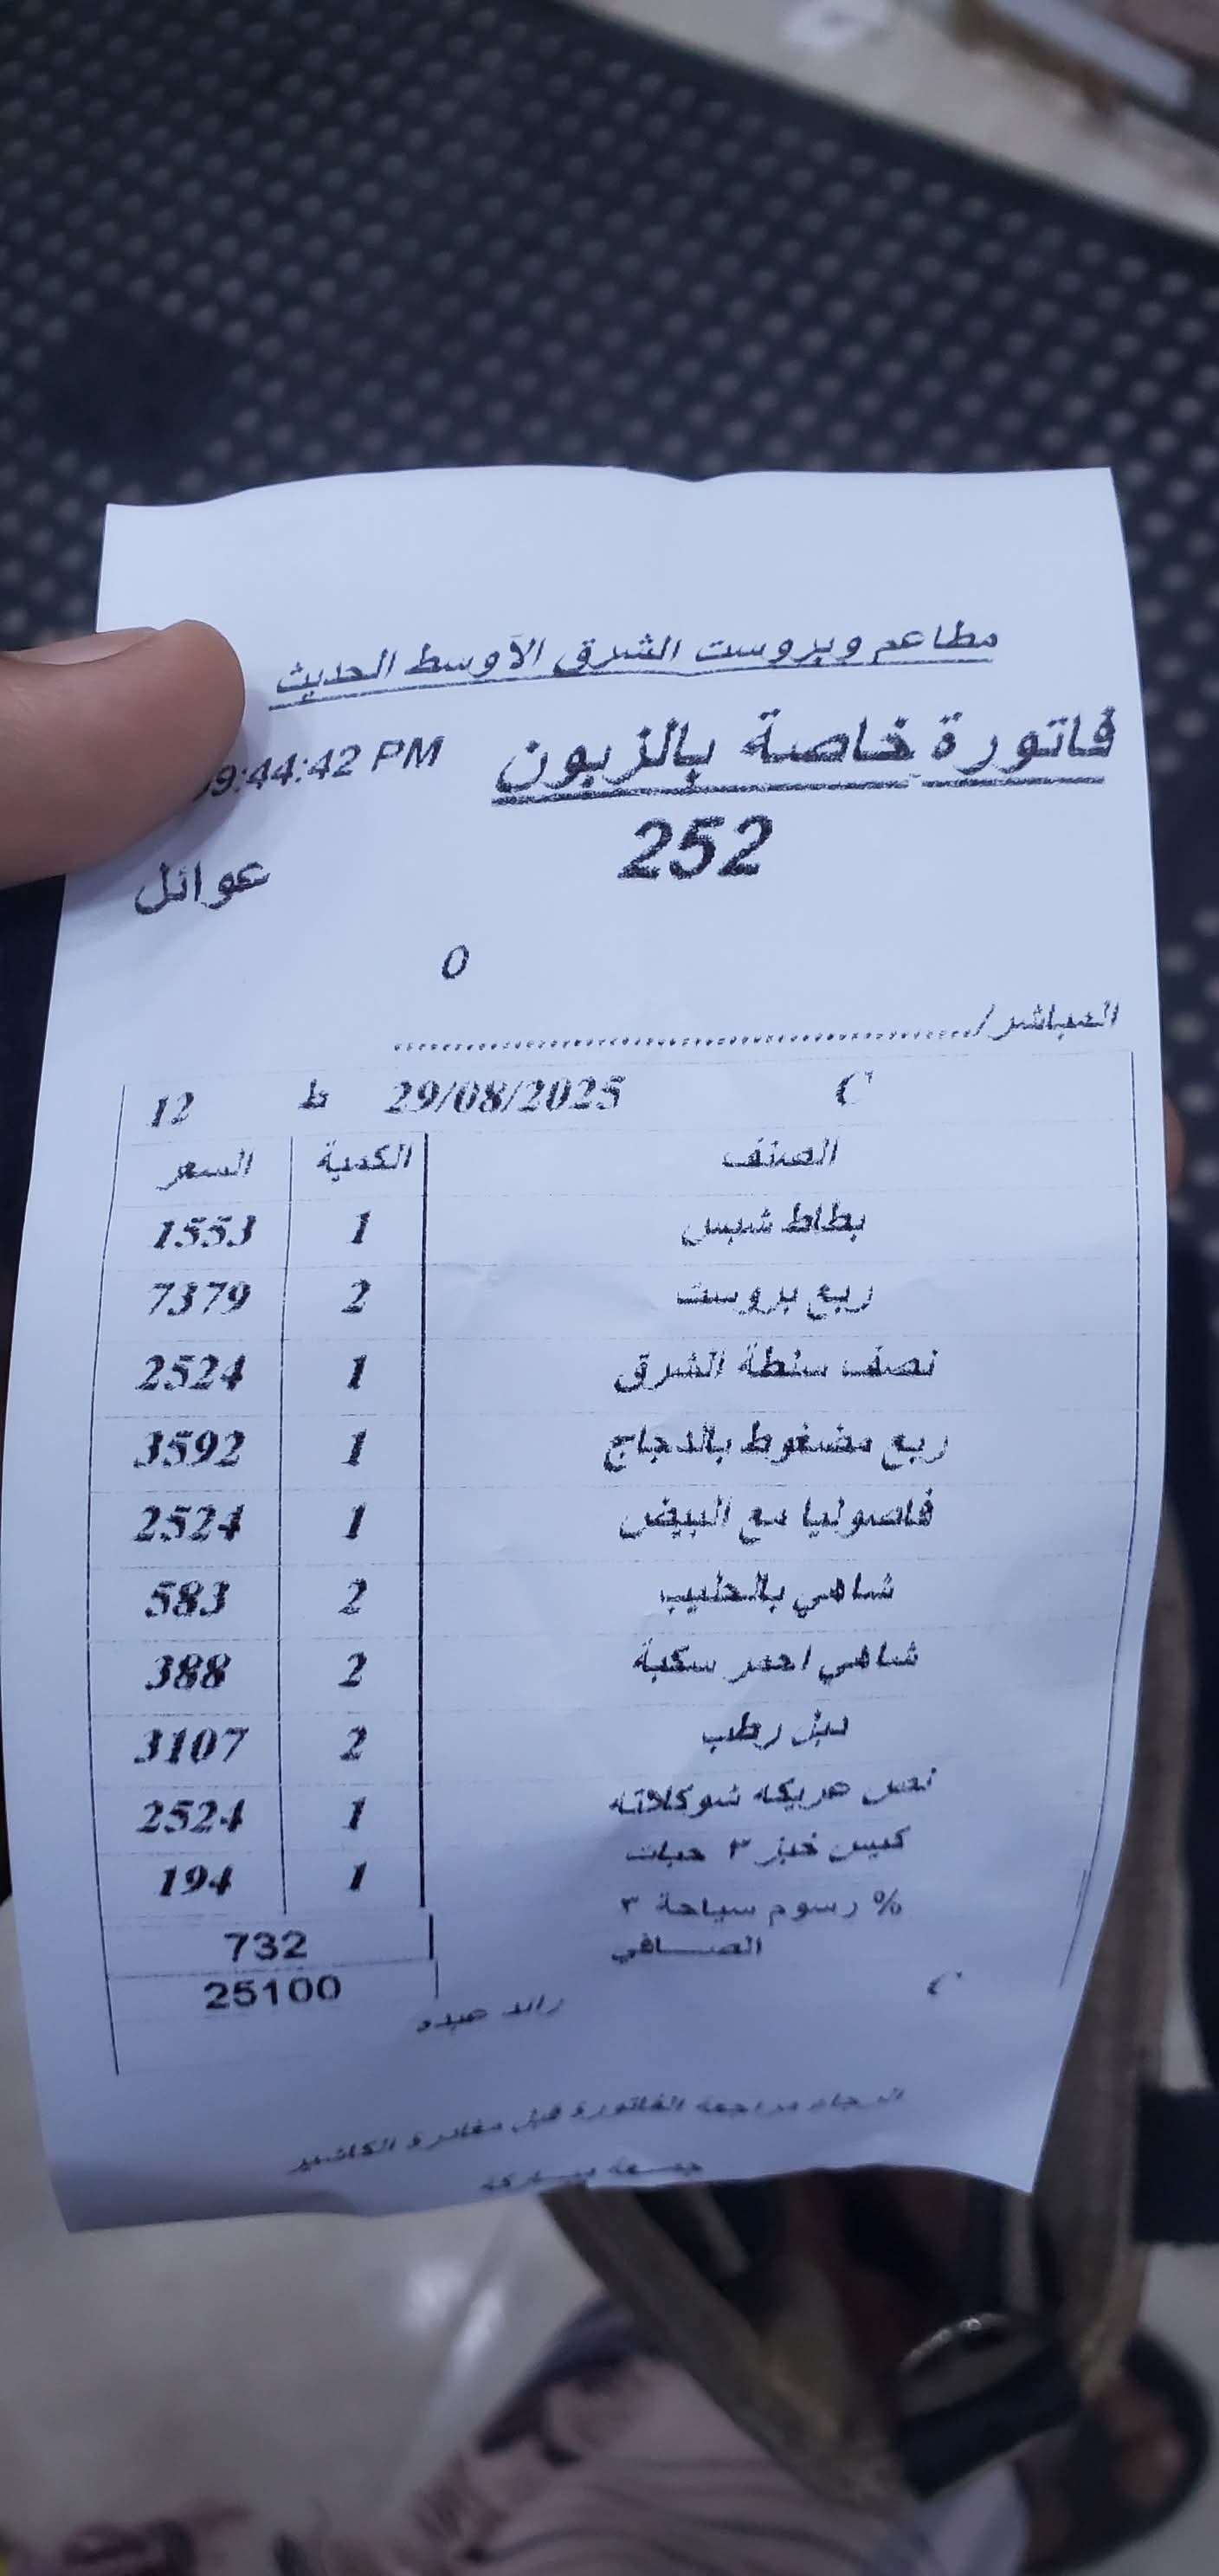 مطاعم وبروست الشرق الأوسط الحديث
فاتورة خاصة بالزبون
9:44:42 PM
252
عوائل
0
المباشر/
29/08/2025 ط 12
الصنف الكمية السعر
بطاط شبس 1 1553
ربع بروست 2 7379
نصف سلطة الشرق 1 2524
ربع مضغوط بالدجاج 1 3592
فاصوليا مع البيض 1 2524
شاهي بالحليب 2 583
شاهي احمر سكبة 2 388
رطب 2 3107
نص عريكه شوكلاته 1 2524
كيس خبز ٣ حبات 1 194
% رسوم سياحة ٣ 732
الصافي 25100
رائد عبده
الرجاء مراجعة الفاتورة قبل مغادرة الكاشير
جمعة مباركة